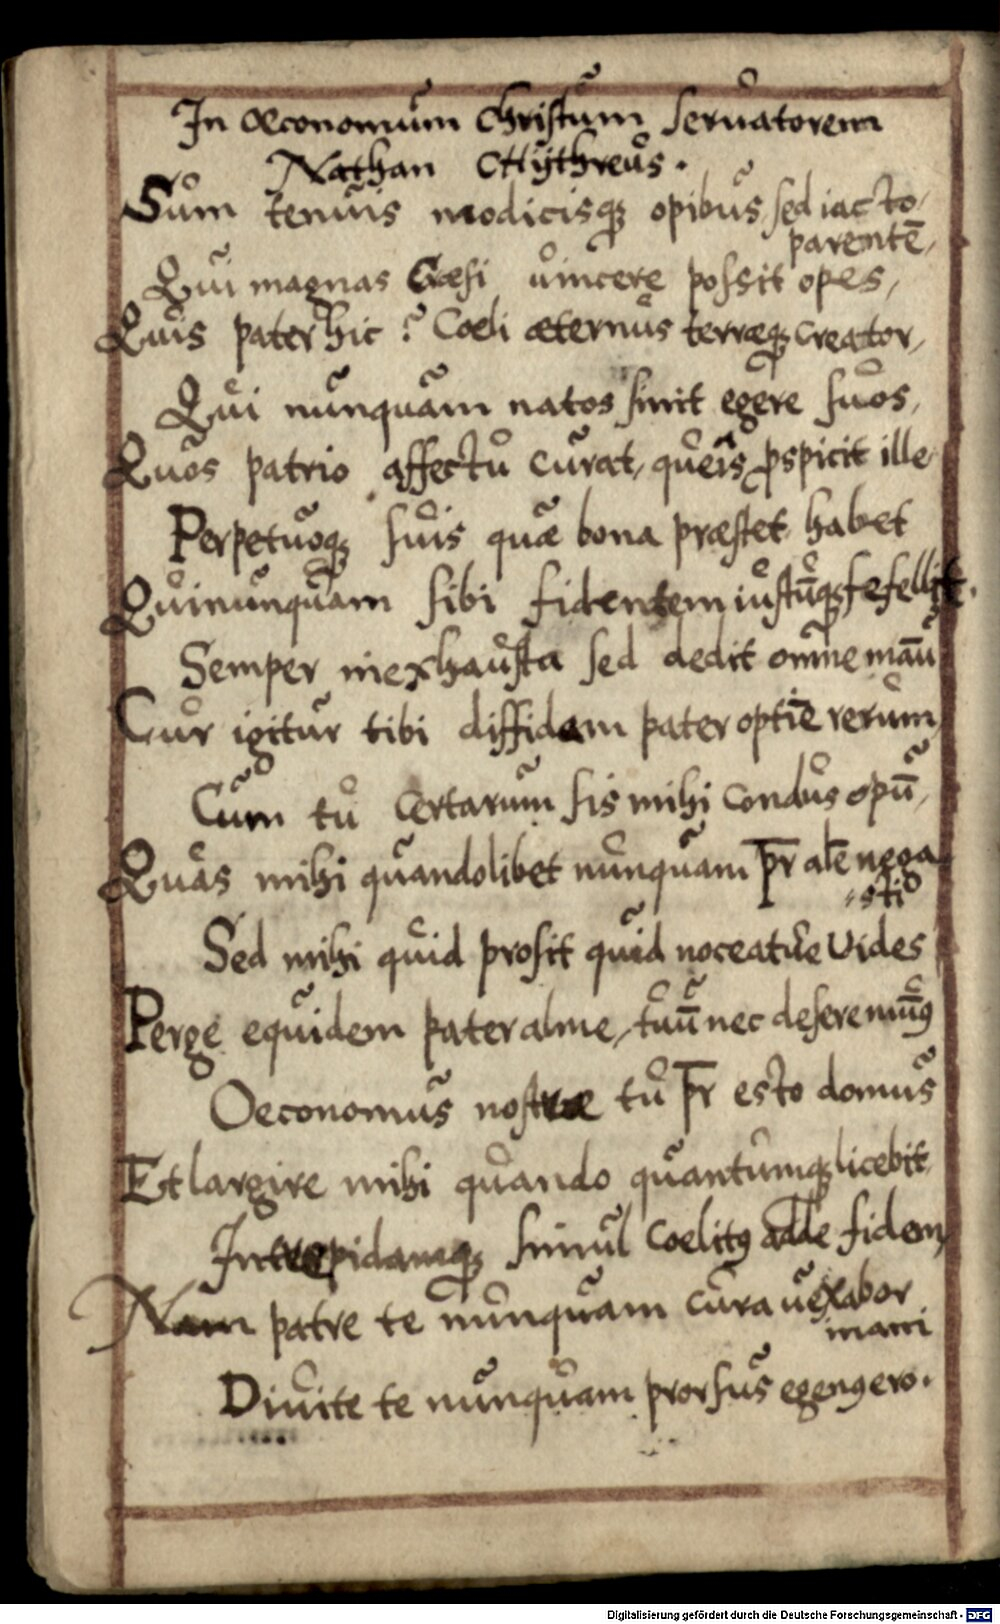 In Œconomum Christum Seruatorem
Nathan Chÿthreus.
Sum tenuis modicisqꝫ opibus, sed iacto
parentē,
Qui magnas Cræsi uincere possit opes,
Quis pater hic? Coeli æternus terræqꝫ creator,
Qui nunquam natos sinit egere suos,
Quos patrio affectu curat, queis ꝓspicit ille
Perpetuoqꝫ suis quæ bona præstet habet
Qui nunquam sibi fidentem iustūqꝫ fefellit.
Semper inexhausta sed dedit omne manū
Cur igitur tibi diffidam pater optīe rerum,
Cum tu certarum sis mihi condus opū,
Quas mihi quandolibet nunquam pr̄ alē nega
sti
Sed mihi quid prosit quid noceatue uides
Perge equidem pater alme, tuū nec desere munꝰ
Oeconomus nostræ tu pr̄ esto domus
Et largire mihi quando quantumqꝫ licebit
Intrepidamqꝫ simul coelitꝰ adde fidem,
Nam patre te nunquam cura uexabor
inani
Diuite te nunquam prorsus egenꝰ ero.
Digitalisierung gefördert durch die Deutsche Forschungsgemeinschaft - DFG